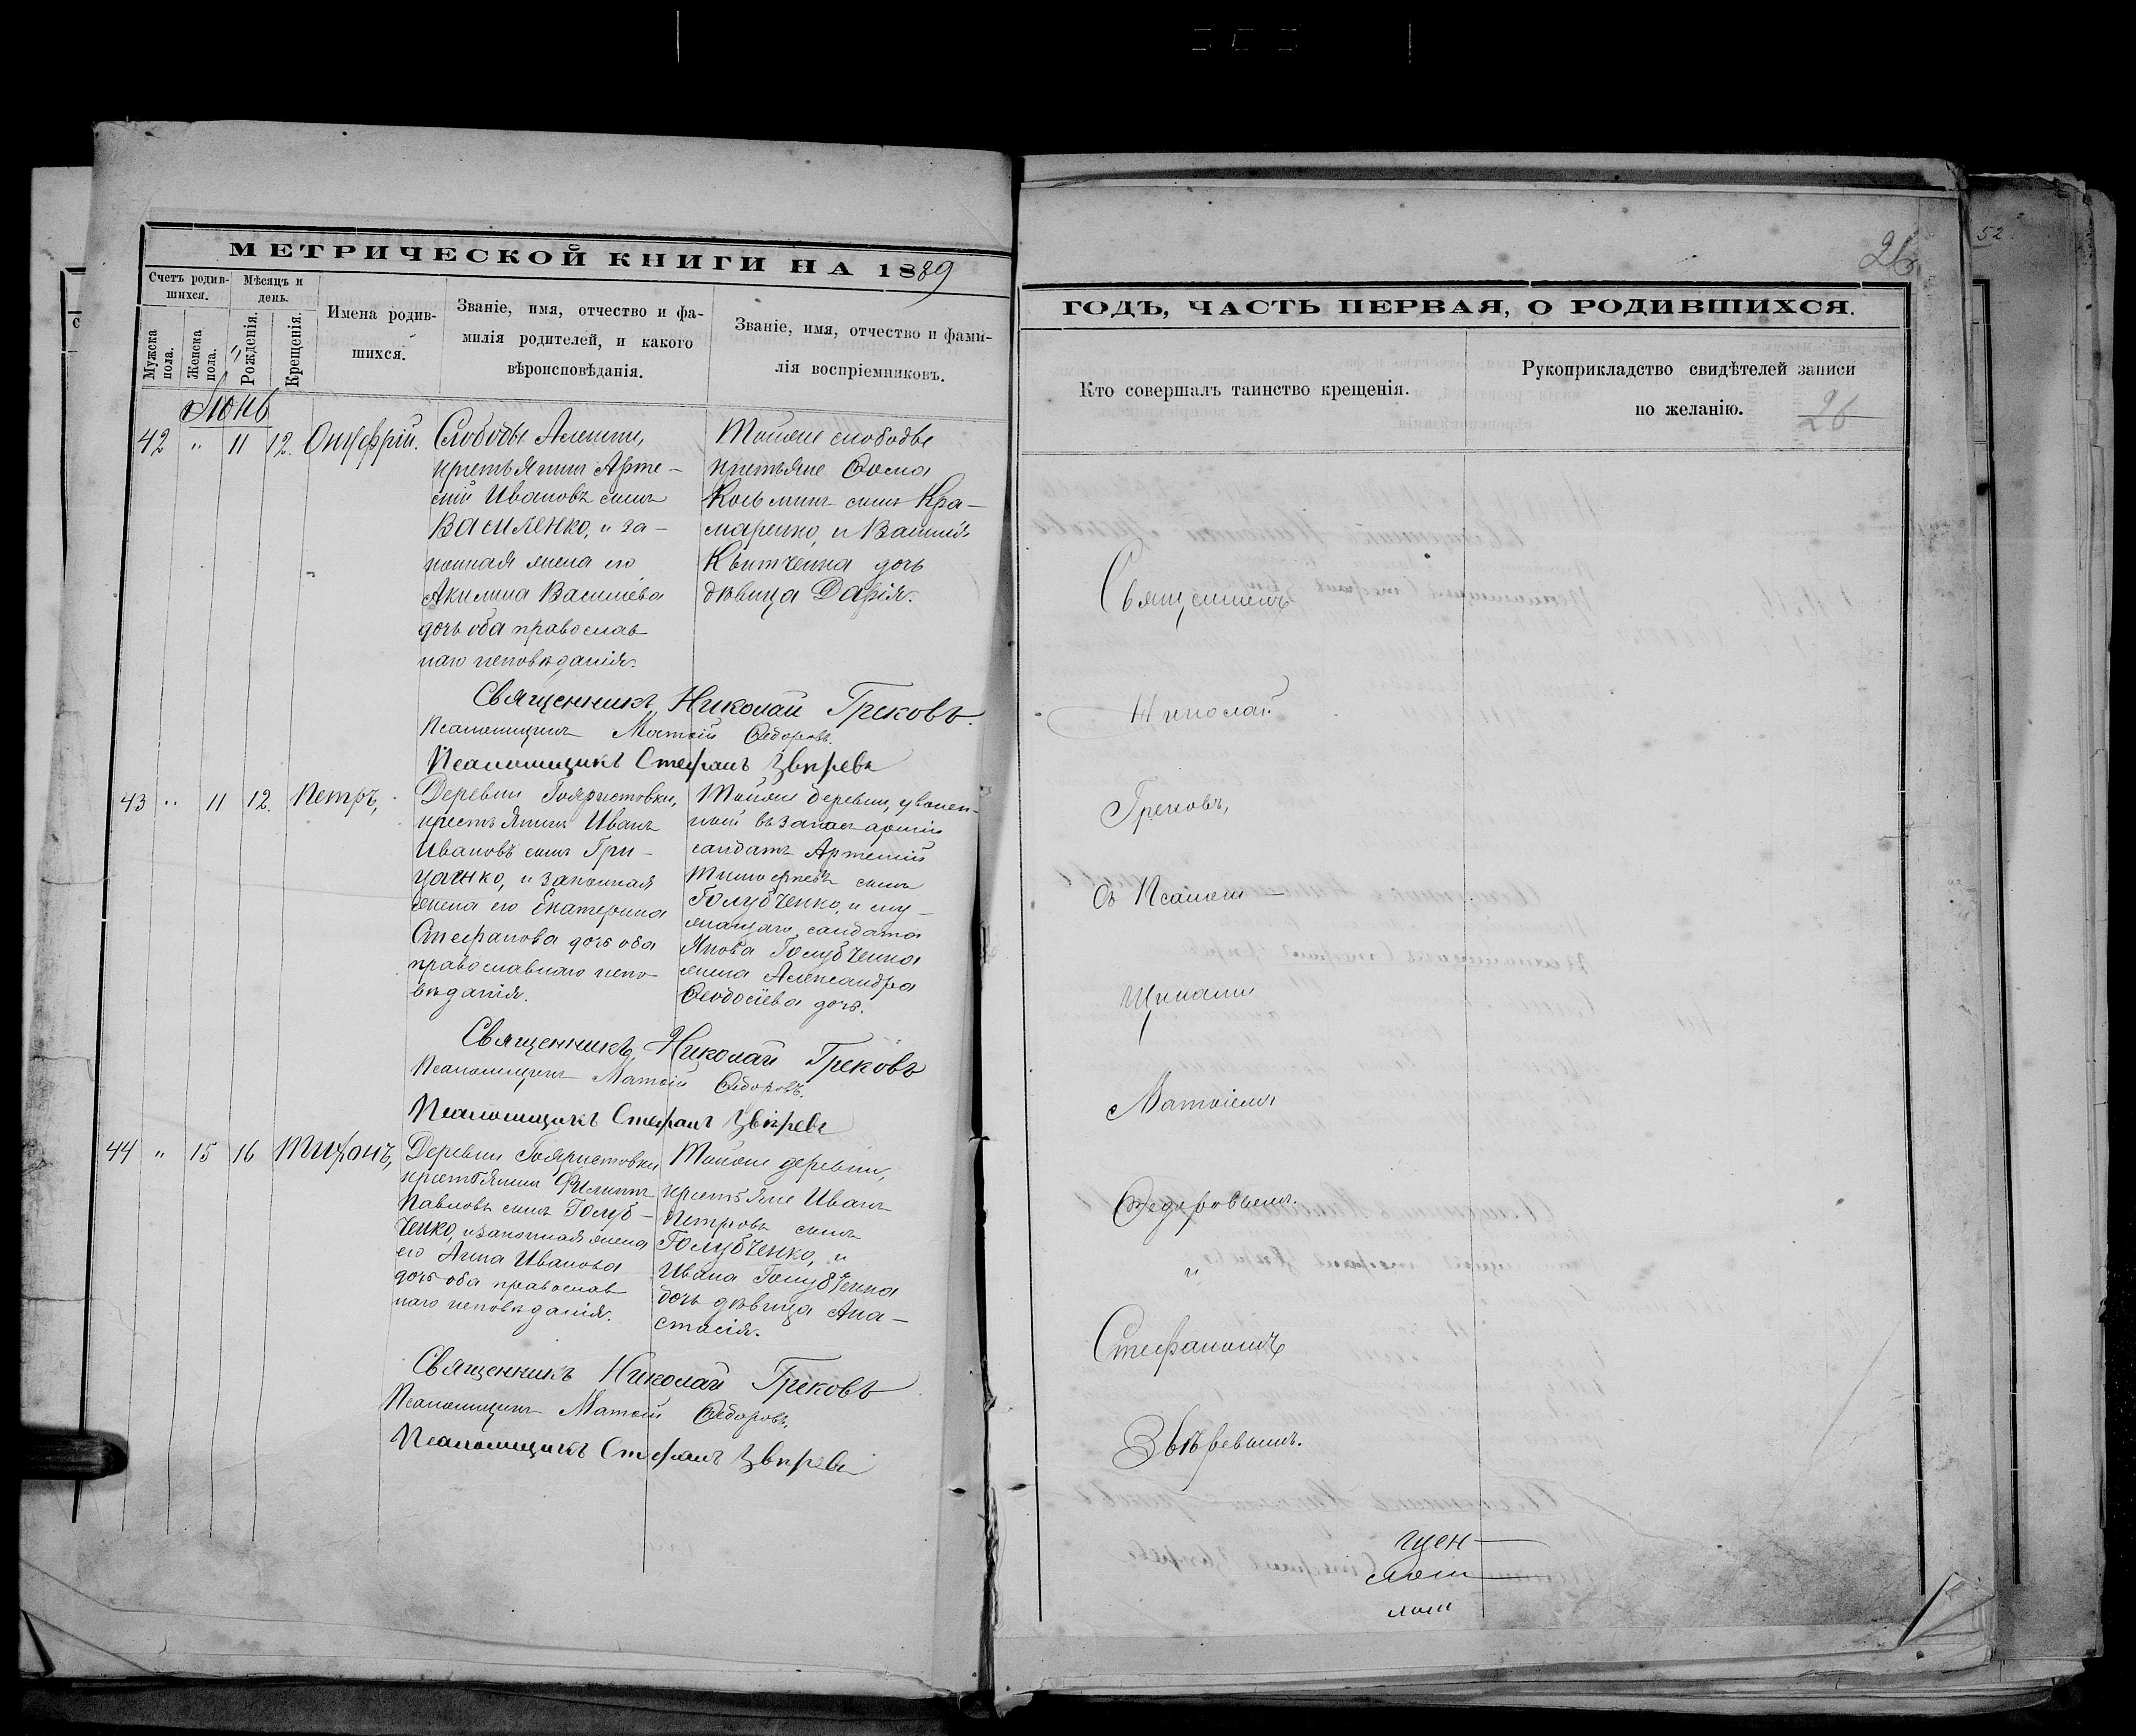 МЕТРИЧЕСКОЙ КНИГИ НА 1889
Счетъ родив-
шихся.
Мѣсяцъ и
день.
Мужска
пола.
Женска
пола.
Рожденія.
Крещенія.
Имена родив-
шихся.
Званіе, имя, отчество и фа-
милія родителей, и какого
вѣроисповѣданія.
Званіе, имя, отчество и фами-
лія воспріемниковъ.
Іюнь
42 " 11 12. Онуфрій.
Слободы
крестьянинъ Арте-
мій Ивановъ сынъ
Василенко, и за-
конная жена его
Акилина Василіева
дочь оба православ
наго исповѣданія.
Тойже слободы
крестьяне Ѳома
Козьминъ сынъ Кра-
маренко, и Василія
Квитченка дочь
дѣвица Дарія.
Священникъ Николай Грековъ.
Псаломщикъ Матѳій Ѳедоровъ.
Псаломщикъ Стефанъ Звѣревъ
43 " 11 12. Петръ,
Деревни
крестьянинъ Иванъ
Ивановъ сынъ Гри-
цаенко, и законная
жена его Екатерина
Стефанова дочь оба
православнаго испо-
вѣданія.
Тойже деревни, уволен-
ный въ запасъ арміи
солдатъ Артемій
Тимофѣевъ сынъ
Голубченко, и слу-
жащаго солдата
Якова Голубченка
жена Александра
Ѳеодосіева дочь.
Священникъ Николай Грековъ
Псаломщикъ Матѳій Ѳедоровъ.
Псаломщикъ Стефанъ Звѣревъ
44 " 15 16 Тифонъ,
Деревни
крестьянинъ Филиппъ
Павловъ сынъ Голуб-
ченко, и законная жена
его Анна Иванова
дочь оба православ
наго исповѣданія.
Тойже деревни,
крестьяне Иванъ
Петровъ сынъ
Голубченко, и
Ивана Голубченка
дочь дѣвица Ана-
стасія.
Священникъ Николай Грековъ
Псаломщикъ Матѳій Ѳедоровъ,
Псаломщикъ Стефанъ Звѣревъ
26
52.
ГОДЪ, ЧАСТЬ ПЕРВАЯ, О РОДИВШИХСЯ.
Кто совершалъ таинство крещенія.
Рукоприкладство свидѣтелей записи
по желанію.
26
Священникъ
Николай
Грековъ,
съ Псалом-
щиками
Матѳіемъ
Ѳедоровымъ.
и
Стефаномъ
Звѣревымъ.